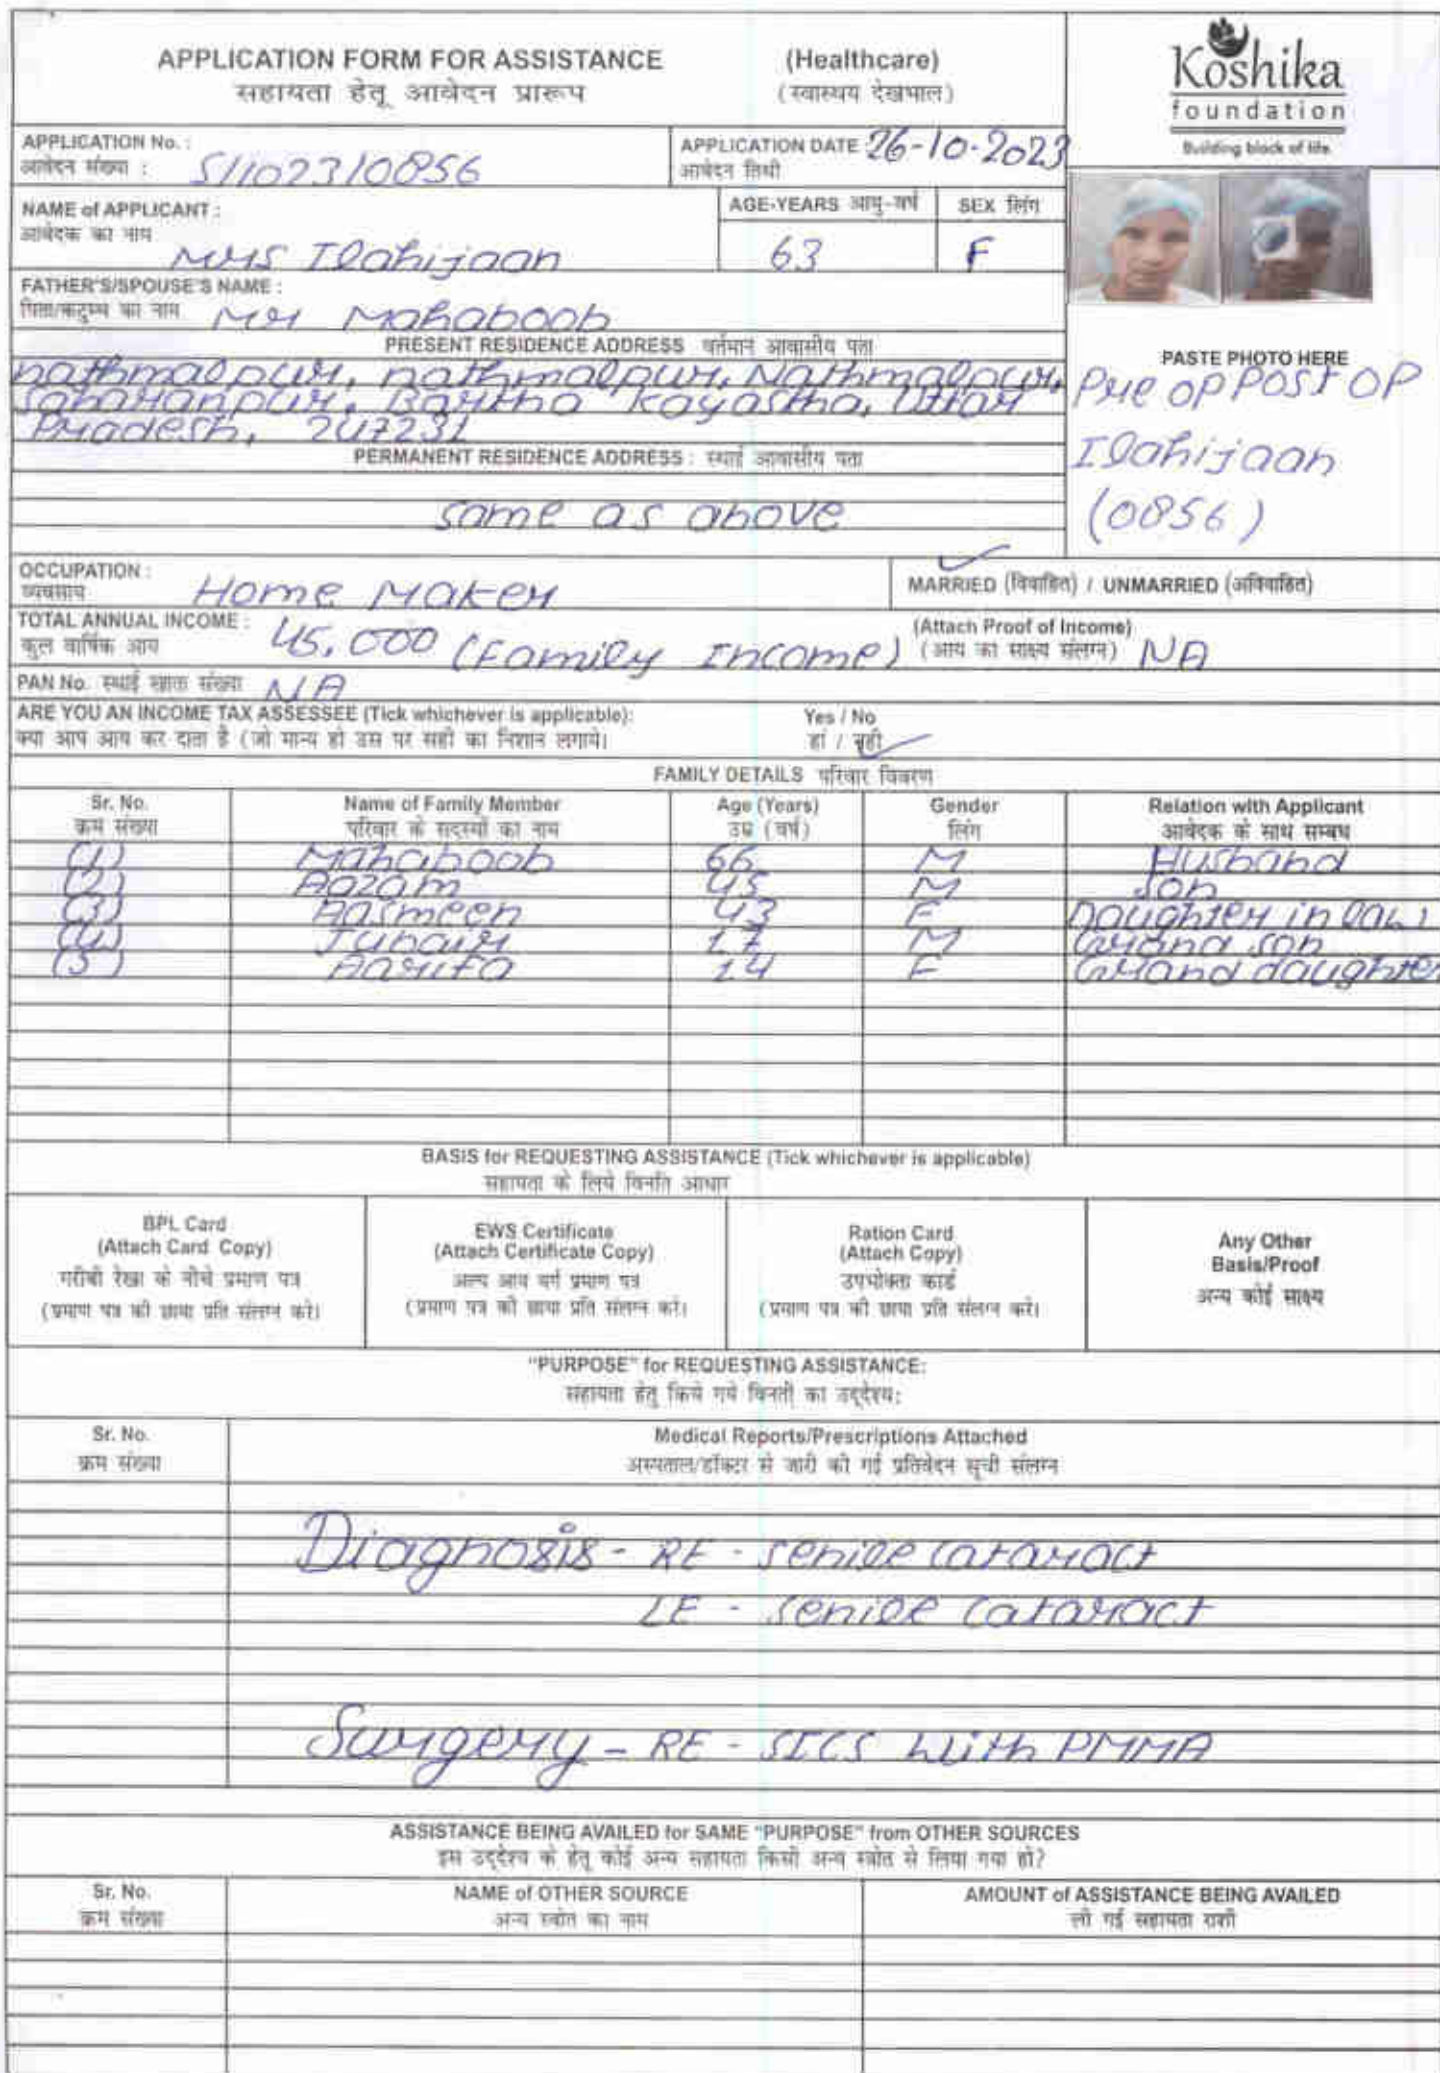 APPLICATION FORM FOR ASSISTANCE (Healthcare)
सहायता हेतू आवेदन प्रारूप (स्वास्थय देखभाल)
Koshika
foundation
Building block of life
APPLICATION No. :
आवेदन संख्या : S/1023/0856
APPLICATION DATE 26-10-2023
आवेदन तिथी
NAME of APPLICANT :
आवेदक का नाम Mrs Ilahijaan
AGE-YEARS आयु-वर्ष 63
SEX लिंग F
FATHER'S/SPOUSE'S NAME :
पिता/कटुम्ब का नाम Mr Mahaboob
PRESENT RESIDENCE ADDRESS वर्तमान आवासीय पता
nathmalpur, nathmalpur, Nathmalpur,
Saharanpur, Bartha Kayastha, Uttar
Pradesh, 247231
PERMANENT RESIDENCE ADDRESS : स्थाई आवासीय पता
same as above
PASTE PHOTO HERE
Pre op Post OP
Ilahijaan
(0856)
OCCUPATION :
व्यवसाय Home Maker
MARRIED (विवाहित) / UNMARRIED (अविवाहित)
TOTAL ANNUAL INCOME :
कुल वार्षिक आय 45,000 (Family Income)
(Attach Proof of Income)
(आय का साक्ष्य संलग्न) NA
PAN No. स्थाई खाता संख्या NA
ARE YOU AN INCOME TAX ASSESSEE (Tick whichever is applicable): Yes / No
क्या आप आय कर दाता है (जो मान्य हो उस पर सही का निशान लगाये। हां / नहीं
FAMILY DETAILS परिवार विवरण
Sr. No. Name of Family Member Age (Years) Gender Relation with Applicant
क्रम संख्या परिवार के सदस्यों का नाम उम्र (वर्ष) लिंग आवेदक के साथ सम्बध
(1) Mahaboob 66 M Husband
(2) Aazam 45 M Son
(3) Aasmeen 43 F Daughter in law
(4) Junair 17 M Grand son
(5) Aarifa 14 F Grand daughter
BASIS for REQUESTING ASSISTANCE (Tick whichever is applicable)
सहायता के लिये विनति आधार
BPL Card
(Attach Card Copy)
गरीबी रेखा के नीचे प्रमाण पत्र
(प्रमाण पत्र की छाया प्रति संलग्न करे।
EWS Certificate
(Attach Certificate Copy)
अल्प आय वर्ग प्रमाण पत्र
(प्रमाण पत्र की छाया प्रति संलग्न करे।
Ration Card
(Attach Copy)
उपभोक्ता कार्ड
(प्रमाण पत्र की छाया प्रति संलग्न करे।
Any Other
Basis/Proof
अन्य कोई साक्ष्य
"PURPOSE" for REQUESTING ASSISTANCE:
सहायता हेतु किये गये विनती का उद्देश्य:
Sr. No. Medical Reports/Prescriptions Attached
क्रम संख्या अस्पताल/डॉक्टर से जारी की गई प्रतिवेदन सूची संलग्न
Diagnosis - RE - senile cataract
LE - senile cataract
Surgery - RE - SICS with PMMA
ASSISTANCE BEING AVAILED for SAME "PURPOSE" from OTHER SOURCES
इस उद्देश्य के हेतू कोई अन्य सहायता किसी अन्य स्त्रोत से लिया गया हो?
Sr. No. NAME of OTHER SOURCE AMOUNT of ASSISTANCE BEING AVAILED
क्रम संख्या अन्य स्त्रोत का नाम ली गई सहायता राशी